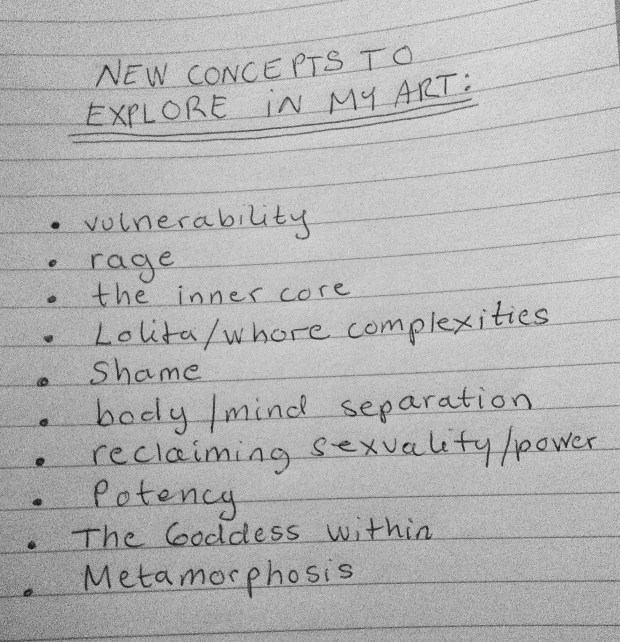 NEW CONCEPTS TO
EXPLORE iN MY ART:
• vulnerability
• rage
• the inner core
• Lolita/whore complexities
• Shame
• body/mind separation
• reclaiming sexuality/power
• Potency
• The Goddess within
• Metamorphosis